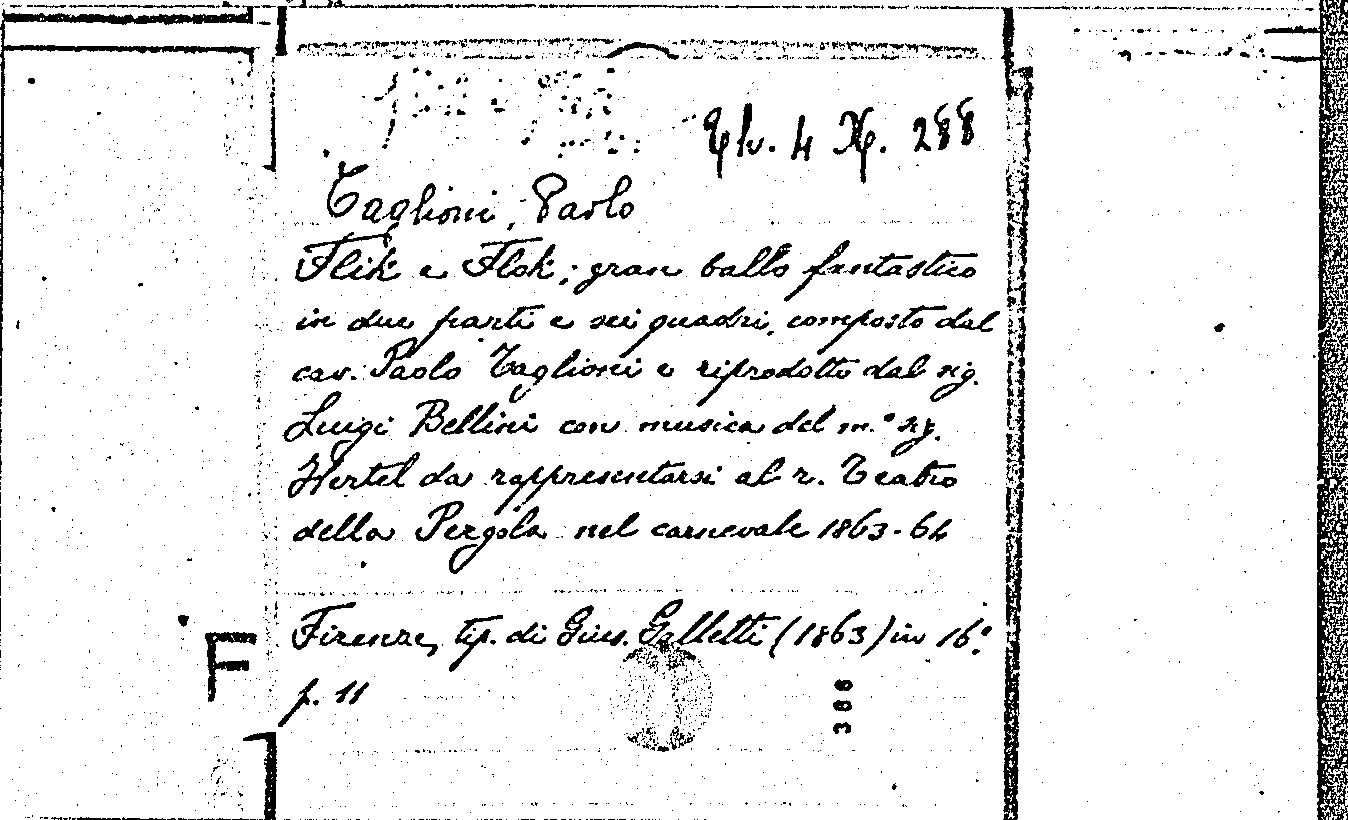 4 X. 288
Taglioni, Paolo
Flik e Flok; gran ballo fantastico
in due parti e sei quadri, composto dal
cav. Paolo Taglioni e riprodotto dal sig.
Luigi Bellini con musica del m.° sig.
Hertel da rappresentarsi al r. Teatro
della Pergola nel carnevale 1863-64
Firenze, tip. di Gius. Galletti (1863) in 16.°
p. 11
F
388